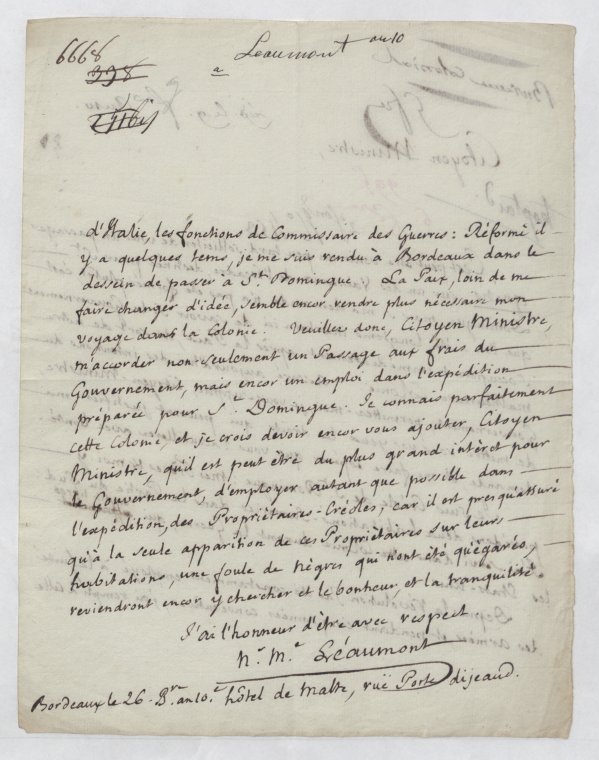 6668
338
Leaumont an 10
a
d'Italie, les fonctions de Commissaire des Guerres : Réformé il
y a quelques tems, je me suis rendu à Bordeaux dans le
dessein de passer à St. Domingue. La Paix, loin de me
faire changer d'idée, semble encor rendre plus nécessaire mon
voyage dans la Colonie. Veuillez donc, Citoyen Ministre,
m'accorder non-seulement un Passage aux frais du
Gouvernement, mais encor un emploi dans l'expédition
préparée pour St. Domingue. Je connais parfaitement
cette Colonie, et je crois devoir encor vous ajouter, Citoyen
Ministre, qu'il est peut être du plus grand intérêt pour
le Gouvernement, d'employer autant que possible dans
l'expédition, des Propriétaires-Créoles; car il est presqu'assuré
qu'à la seule apparition de ces Propriétaires sur leurs
habitations, une foule de nègres qui n'ont été qu'égarés,
reviendront encor y chercher et le bonheur, et la tranquilité.
J'ai l'honneur d'être avec respect
hr. Me. Léaumont
Bordeaux le 26 Bre. an 10. hôtel de Malte, ruë Porte dijeaud.